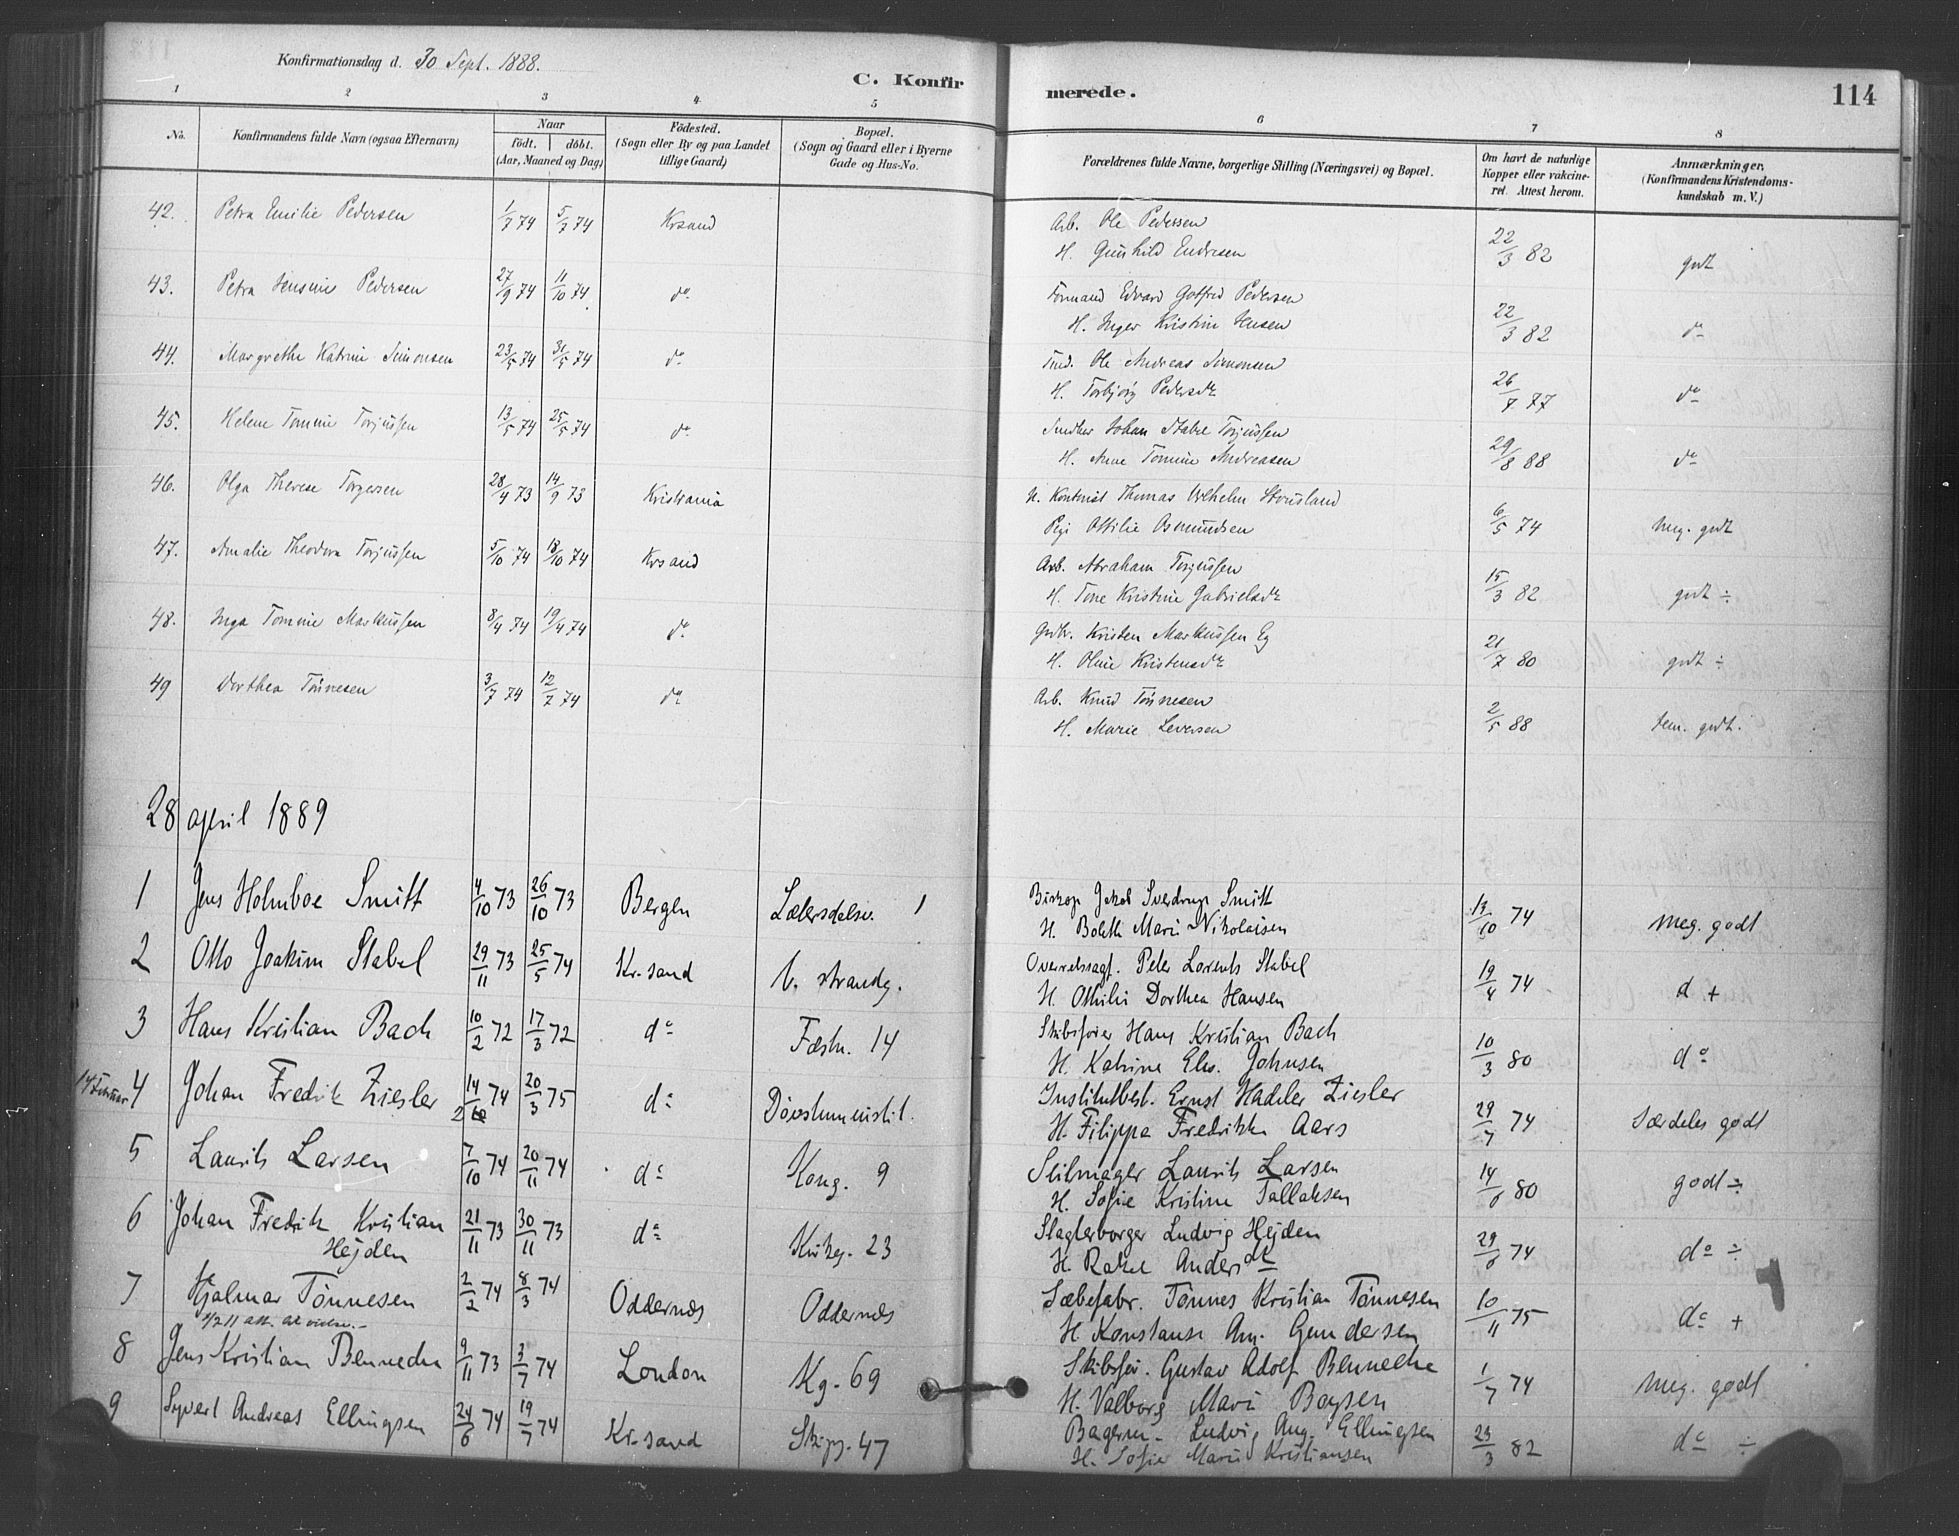 Konfirmationsdag d. 30 Sept. 1888.
C. Konfirmerede.
114
1 2 3 4 5 6 7 8
No. Konfirmandens fulde Navn (ogsaa Efternavn) Naar födt. döbt. (Aar, Maaned og Dag) Födested. (Sogn eller By og paa Landet tillige Gaard) Bopæl. (Sogn og Gaard eller i Byerne Gade og Hus-No. Forældrenes fulde Navne, borgerlige Stilling (Næringsvei) og Bopæl. Om havt de naturlige Kopper eller vakcineret. Attest herom. Anmærkninger. (Konfirmandens Kristendomskundskab m. V.)
42. Petra Emilie Pedersen 1/7 74 5/7 74 Krsand Arb. Ole Pedersen
H. Gunhild Endresen 22/3 82 godt
43. Petra Jensine Pedersen 27/9 74 11/10 74 do Formand Edvard Gotfred Pedersen
H. Inger Kristine Jensen 22/3 82 do
44. Margrethe Katrine Simonsen 23/5 74 31/5 74 do Ole Andreas Simonsen
H. Torbjørg Pedersdr 26/7 77 do
45. Helene Tomine Torjussen 13/5 74 25/5 74 do Johan Torjussen
H. Anne Tomine Andreasen 29/8 88 do
46. Olga Therese Torgersen 28/4 73 14/9 73 Kristiania Thomas Vilhelm
Pige Ottilie Osmundsen 6/5 74 meg. godt
47. Amalie Theodora Torjussen 5/10 74 18/10 74 Krsand Arb. Abraham Torjussen
H. Tone Kristine Gabrielsdr 15/3 82 godt ÷
48. Inga Tomine Markussen 8/4 74 19/4 74 do Grdbr. Kristen Markussen Eg
H. Oline Kristensdr 21/7 80 godt ÷
49 Dorthea Tönnesen 3/7 74 12/7 74 do Arb. Knud Tönnesen
H. Marie Leversen 2/5 88 tem. godt.
28 april 1889
1 Jens Holmboe Smitt 4/10 73 26/10 73 Bergen 1 Biskop Jakob Sverdrup Smitt
H. Boletti Marie Nikolaisen 13/10 74 meg. godt
2 Otto Joakim Stabel 29/11 73 25/5 74 Kr.sand V. strandg. Overretssagf. Peter Lorents Stabel
H. Othilie Dorthea Hansen 19/4 74 d +
3 Hans Kristian Bach 10/2 72 17/3 72 do Fæstn. 14 Skibsfører Hans Kristian Bach
H. Katrine Elis. Johnsen 10/3 80 do
14 Februar 4 Johan Fredrik Ziesler 14/2 74 20/3 75 do Døvstumminstit. Institutbest. Ernst Hadeler Ziesler
H. Filippa Fredrikke Aars 29/7 74 Særdeles godt
5 Laurits Larsen 7/10 74 20/11 74 do Kong. 9 Seilmager Laurits Larsen
H. Sofie Kristine Tallaksen 14/6 80 godt ÷
6 Johan Fredrik Kristian
Hejden 21/11 73 30/11 73 do Kirkeg. 23 Slagterborger Ludvig Hejden
H. Rakel Andersdtr 29/6 74 do ÷
7 Hjalmar Tönnesen 2/2 74 8/3 74 Oddernæs Oddernæs Sæbefabr. Tönnes Kristian Tönnesen
H. Konstanse Am. Gundersen 10/11 75 do +
8 Jens Kristian Bennecke 9/11 73 3/7 74 London Kg. 69 Skibsfør. Gustav Adolf Bennecke
H. Valborg Marie Boysen 1/7 74 meg. godt
9 Syvert Andreas Ellingsen 24/6 74 19/7 74 Kr.sand Skipg. 47 Bagerm. Ludvig Aug. Ellingsen
H. Sofie Marie Kristiansen 23/3 82 do ÷